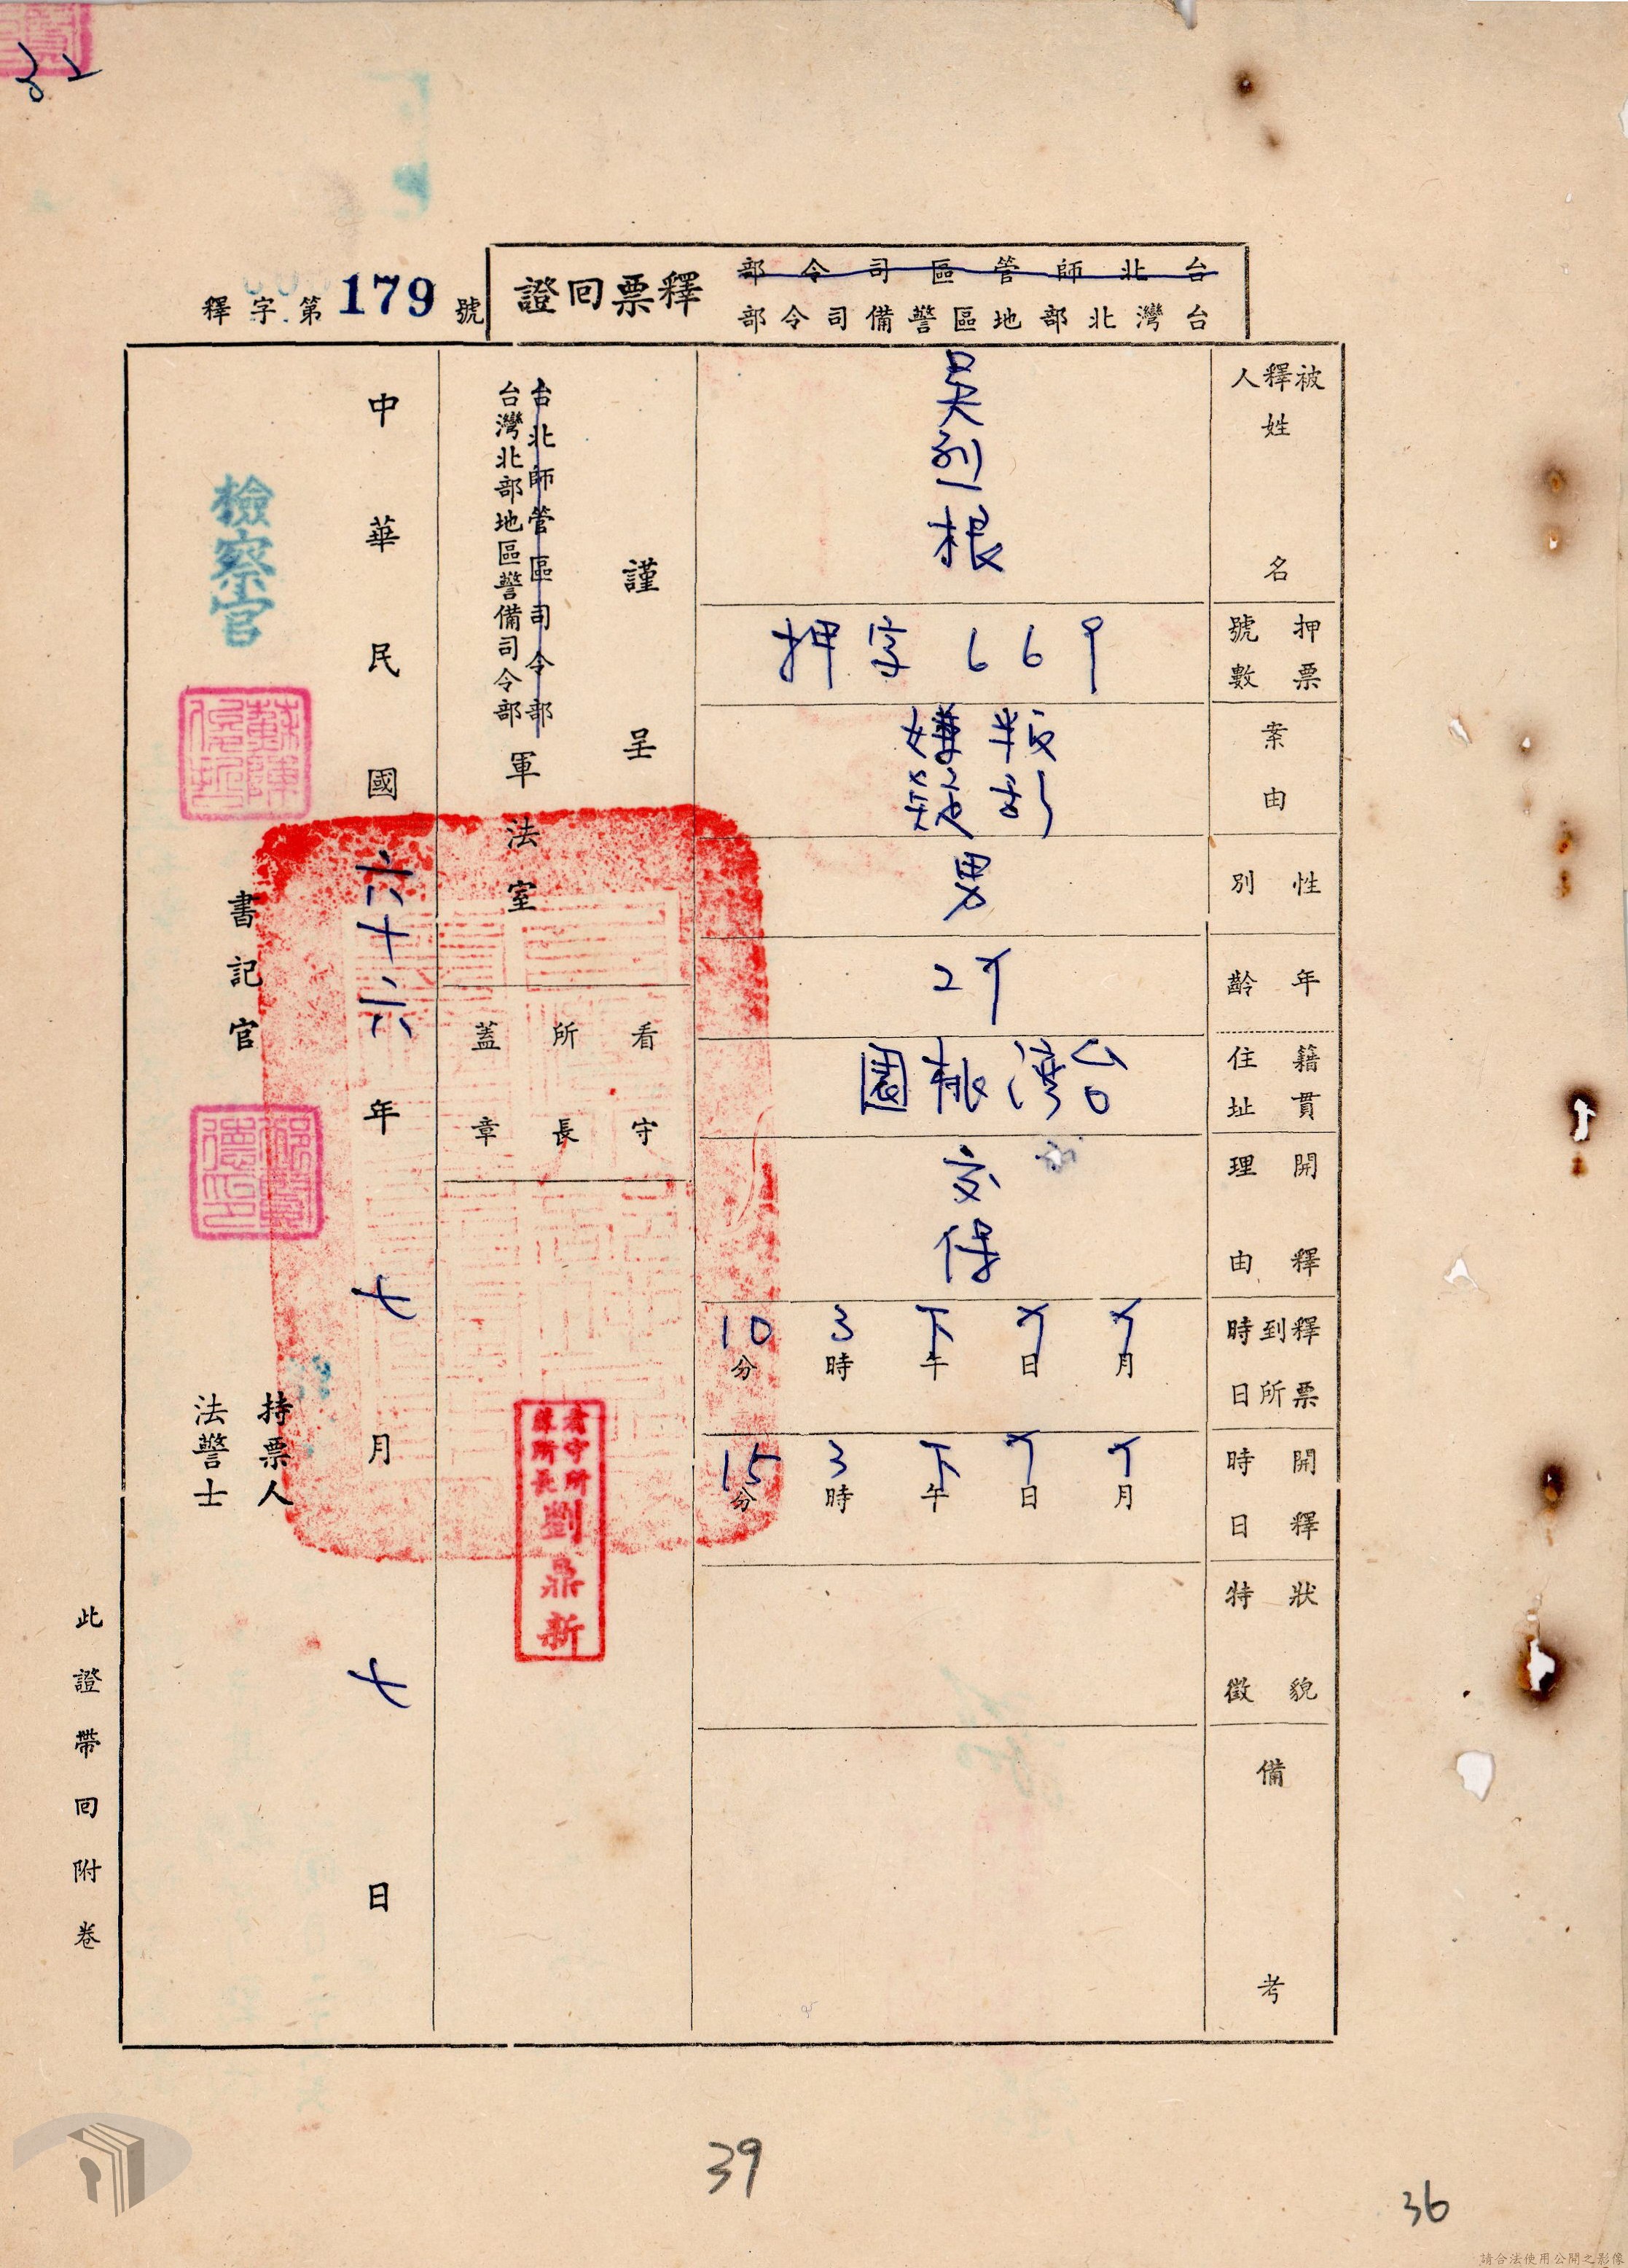 台北師管區司令部
台灣北部地區警備司令部
釋票回證
釋字第179號
被釋人姓名
吳列根
押票號數
押字669
案由
叛亂嫌疑
性別
男
年齡
27
籍貫住址
台灣桃園
開釋理由
交保
釋票到所時日
7月7日下午3時10分
開釋時日
7月7日下午3時15分
狀貌特徵
備考
謹呈
台北師管區司令部
台灣北部地區警備司令部軍法室
看守所所長蓋章
劉鼎新
中華民國六十六年七月七日
檢察官
書記官
持票人
法警士
此證帶回附卷
32
39
36
請合法使用公開之影像